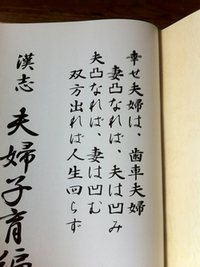 幸せ夫婦は、歯車夫婦
妻凸なれば、夫は凹み
夫凸なれば、妻は凹む
双方出れば人生回らず
漢志 夫婦子育編